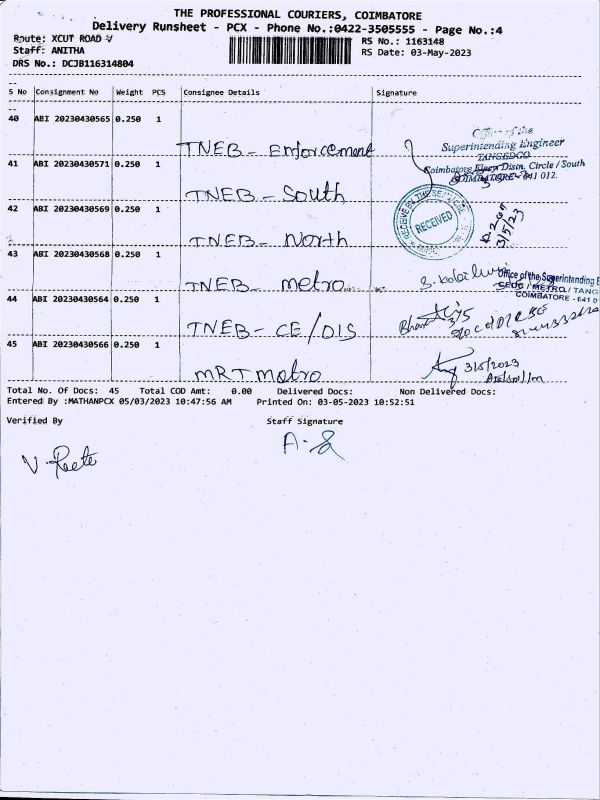 THE PROFESSIONAL COURIERS, COIMBATORE
Delivery Runsheet - PCX - Phone No.:0422-3505555 - Page No.:4
Route: XCUT ROAD
RS No.: 1163148
Staff: ANITHA
RS Date: 03-May-2023
DRS No.: DCJB116314804
S No Consignment No Weight PCS Consignee Details Signature
40 ABI 20230430565 0.250 1
TNEB - Enforcement
Superintending Engineer
TANGEDCO
41 ABI 20230430571 0.250 1
Coimbatore Elecy Distn. Circle / South
COIMBATORE - 641 012.
TNEB - South
RECEIVED
42 ABI 20230430569 0.250 1
3/5/23
TNEB - North
43 ABI 20230430568 0.250 1
TNEB - metro
Office of the Superintending E
CEDC / METRO / TANG
COIMBATORE - 641 0
44 ABI 20230430564 0.250 1
TNEB - CE/DIS
45 ABI 20230430566 0.250 1
3/5/2023
MRT metro
Total No. Of Docs: 45 Total COD Amt: 0.00 Delivered Docs: Non Delivered Docs:
Entered By :MATHANPCX 05/03/2023 10:47:56 AM Printed On: 03-05-2023 10:52:51
Verified By Staff Signature